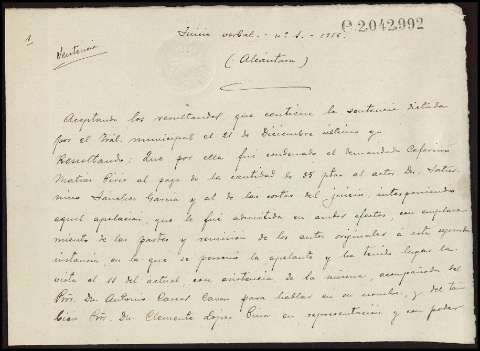 1
C.2.042,992
Juicio verbal. - nº 1. - 1916.
Sentencia
(Alcántara)
Aceptando los resultandos que contiene la sentencia dictada
por el Tral. municipal el 21 de Diciembre último y
Resultando: Que por ella fué condenado el demandado Ceferino
Matias Piris al pago de la cantidad de 25 ptas al actor Dn.
Sanchez Garcia y al de las costas del juicio, interponiendo
aquel apelacion, que le fué admitida en ambos efectos, con emplaza
miento de las partes y remision de los autos originales á esta segunda
instancia, en la que se personó el apelante y ha tenido lugar la
vista el 11 del actual con asistencia de la misma, acompañada del
Pror. Dn Antonio para hablar en su nombre, y del tam
bien Pror. Dn Clemente Lopez en representacion y con poder